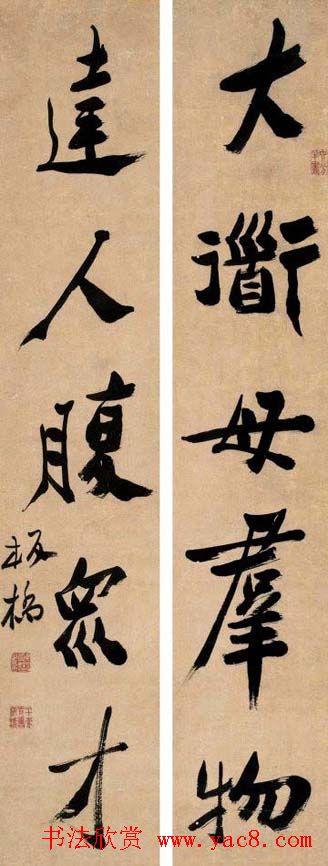 大衜母羣物
達人腹眾才
板橋
书法欣赏 www.yac8.com